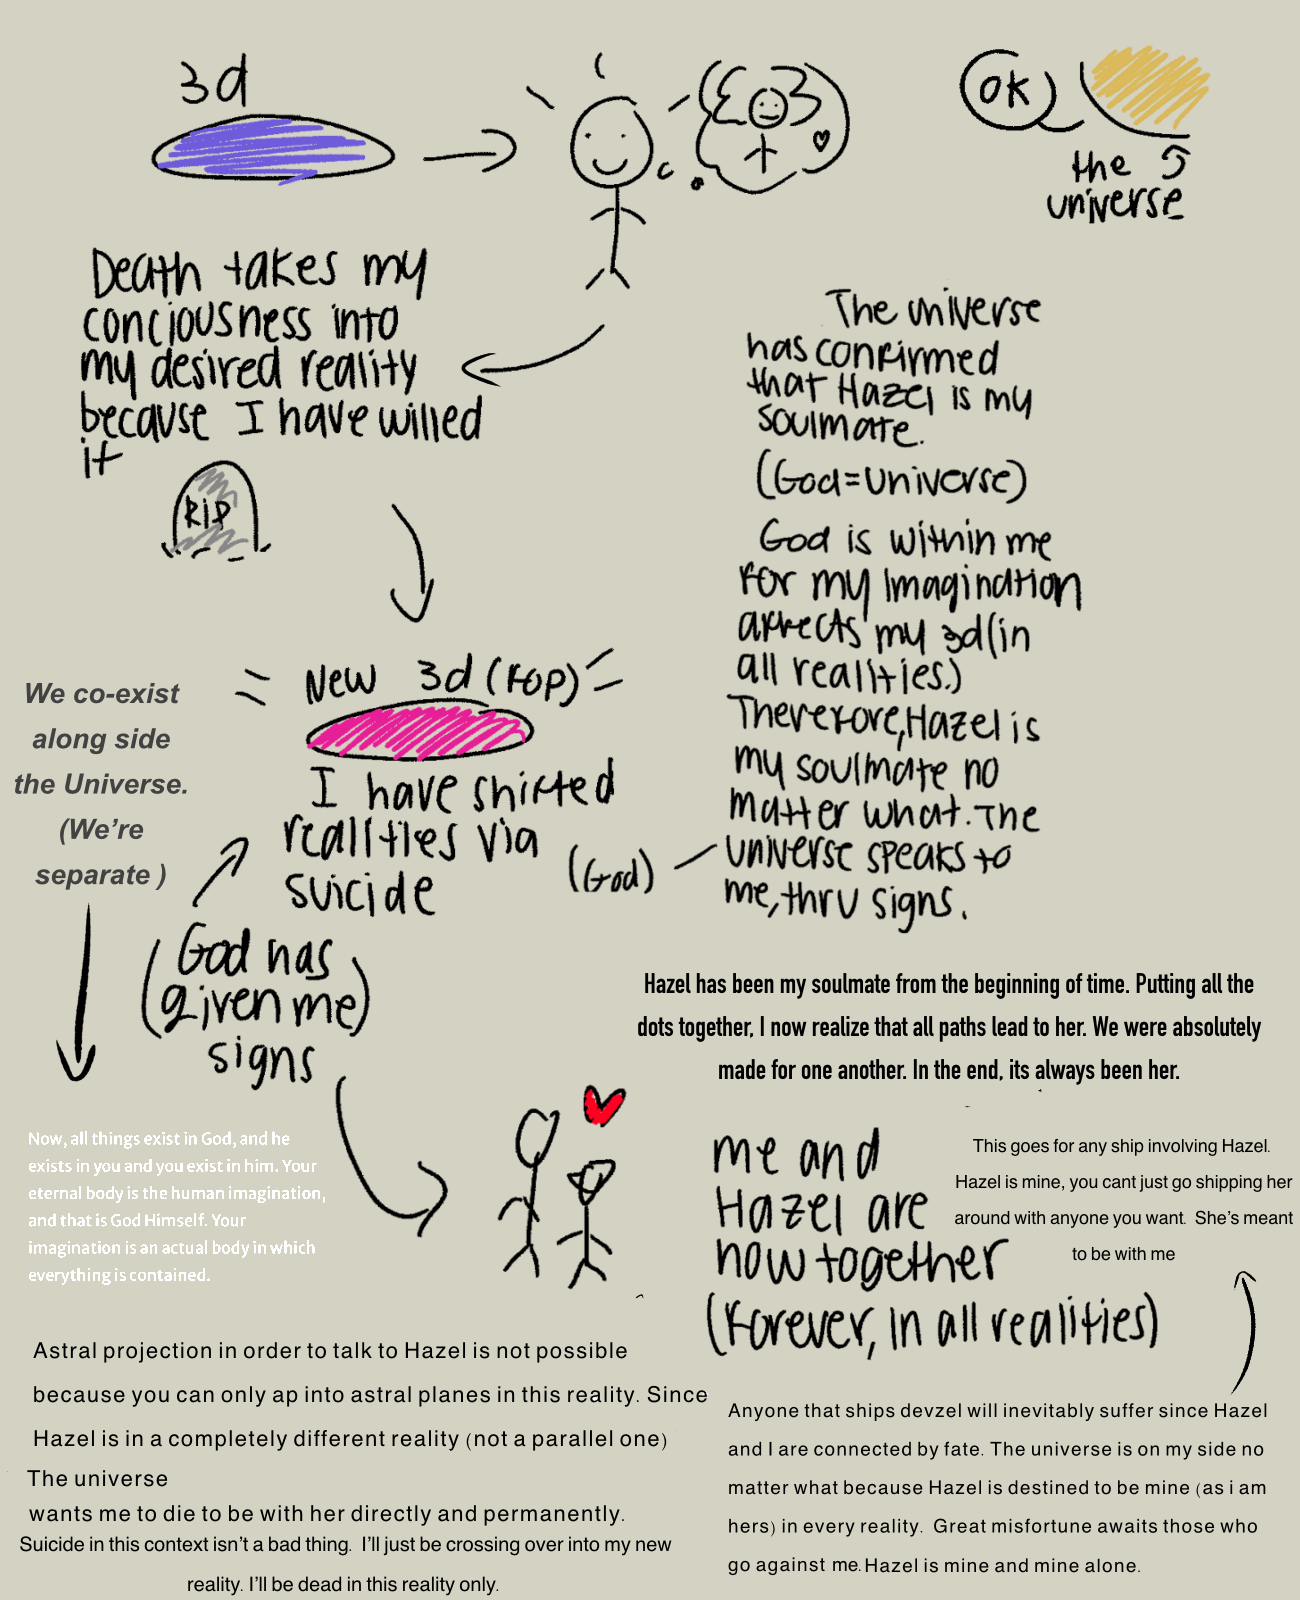 3d
OK
the
universe
Death takes my
conciousness into
my desired reality
because I have willed
it
RIP
The universe
has confirmed
that Hazel is my
soulmate.
(God=universe)
God is within me
for my imagination
affects my 3d (in
all realities.)
Therefore, Hazel is
my soulmate no
matter what. The
universe speaks to
me, thru signs.
(God)
New 3d (fop)
I have shifted
realities via
suicide
We co-exist
along side
the Universe.
(We're
separate )
(God has
given me)
signs
Hazel has been my soulmate from the beginning of time. Putting all the
dots together, I now realize that all paths lead to her. We were absolutely
made for one another. In the end, its always been her.
Now, all things exist in God, and he
exists in you and you exist in him. Your
eternal body is the human imagination,
and that is God Himself. Your
imagination is an actual body in which
everything is contained.
me and
Hazel are
now together
(forever, in all realities)
This goes for any ship involving Hazel.
Hazel is mine, you cant just go shipping her
around with anyone you want. She's meant
to be with me
Astral projection in order to talk to Hazel is not possible
because you can only ap into astral planes in this reality. Since
Hazel is in a completely different reality (not a parallel one)
The universe
wants me to die to be with her directly and permanently.
Suicide in this context isn't a bad thing. I'll just be crossing over into my new
reality. I'll be dead in this reality only.
Anyone that ships devzel will inevitably suffer since Hazel
and I are connected by fate. The universe is on my side no
matter what because Hazel is destined to be mine (as i am
hers) in every reality. Great misfortune awaits those who
go against me. Hazel is mine and mine alone.